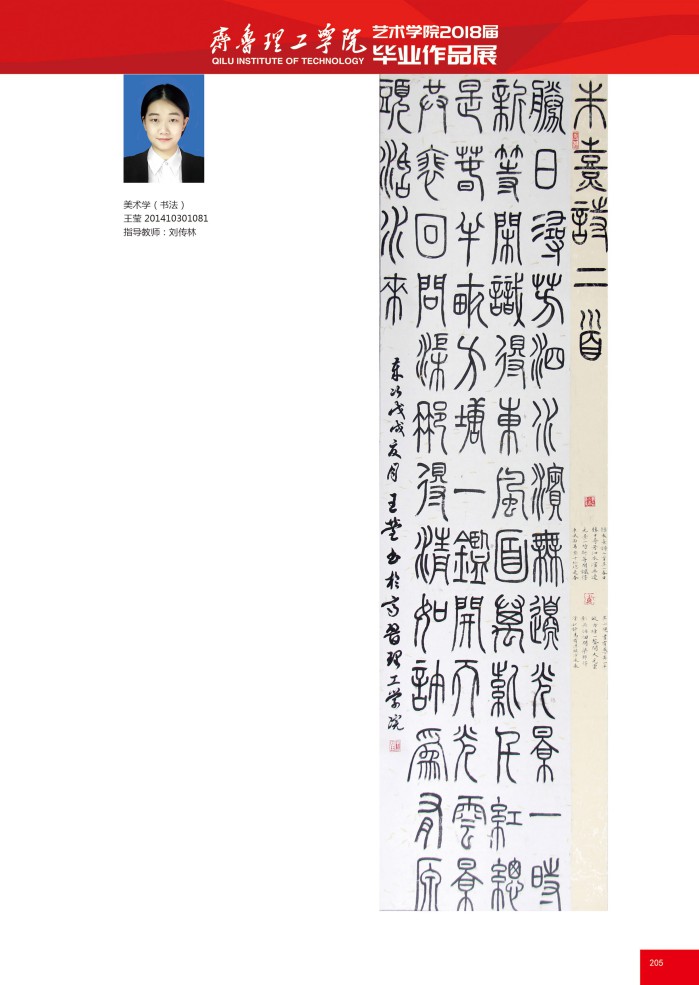 齊魯理工學院
QILU INSTITUTE OF TECHNOLOGY
艺术学院2018届
毕业作品展
美术学（书法）
王莹 201410301081
指导教师：刘传林
朱熹詩二首
勝日尋芳泗水濱無邊光景一時
新等閑識得東風面萬紫千紅總
是春半畝方塘一鑑開天光雲景
共裵回問渠那得清如許爲有原
頭活水來
歲次戊戌夏月王莹書於齊魯理工學院
205